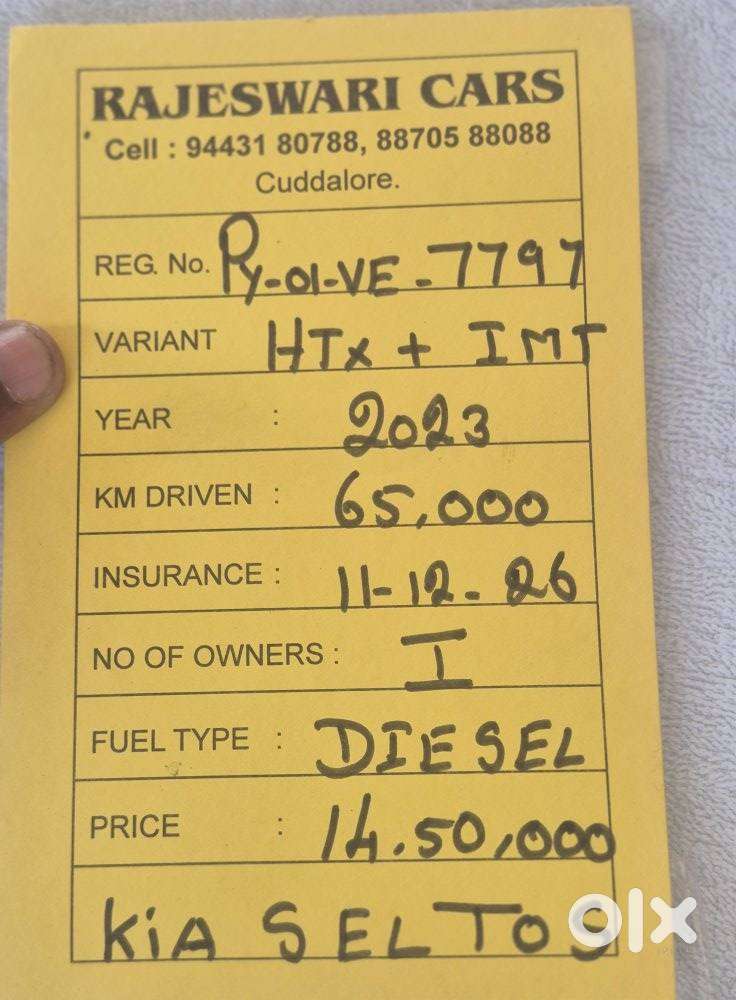 RAJESWARI CARS
Cell : 94431 80788, 88705 88088
Cuddalore.
REG. No. Py-01-VE-7797
VARIANT HTx + IMT
YEAR : 2023
KM DRIVEN : 65,000
INSURANCE : 11-12-26
NO OF OWNERS : I
FUEL TYPE : DIESEL
PRICE : 14.50,000
KiA SELTOS
olx